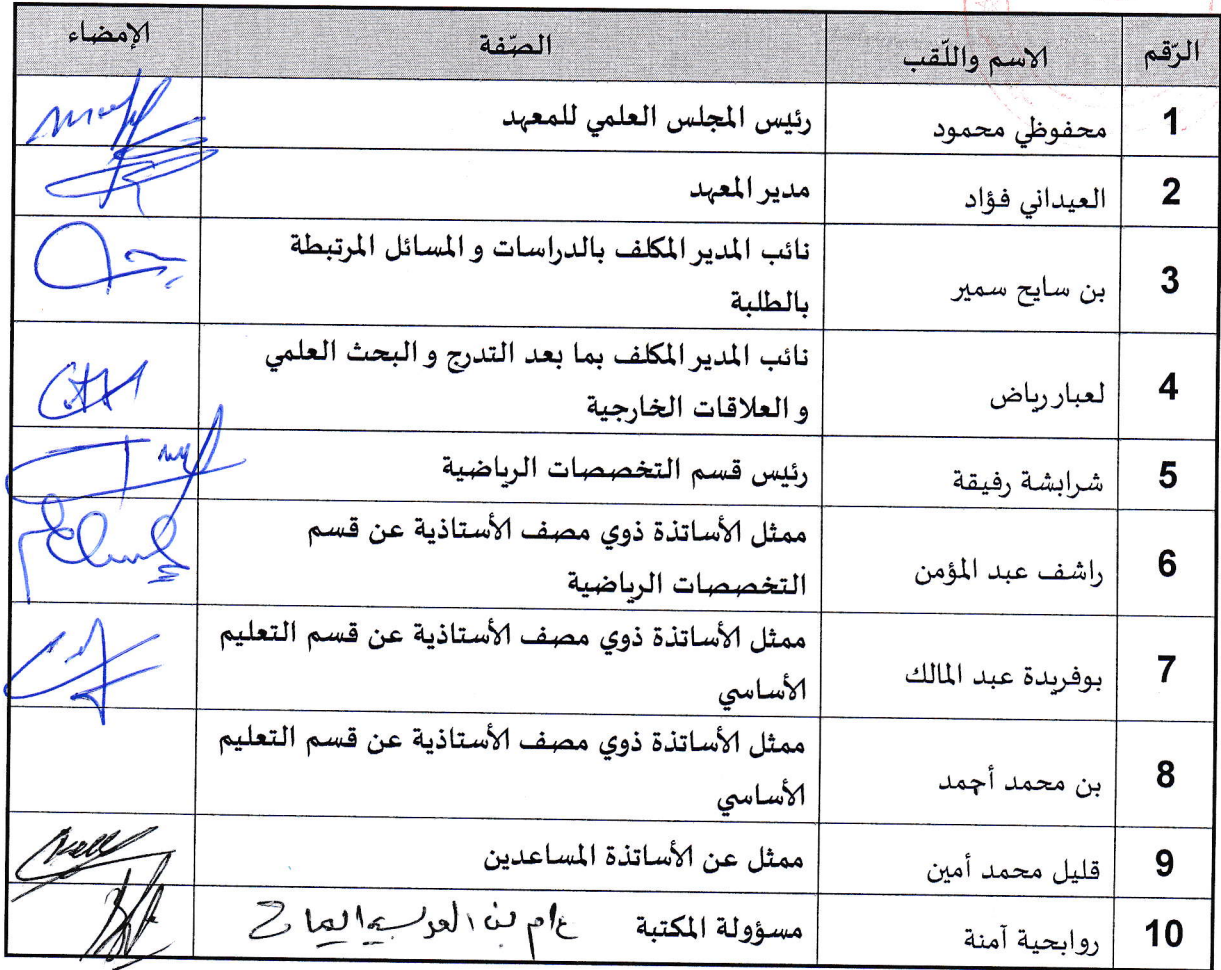 الرّقم الاسم واللّقب الصّفة الإمضاء
1 محفوظي محمود رئيس المجلس العلمي للمعهد
2 العيداني فؤاد مدير المعهد
3 بن سايح سمير نائب المدير المكلف بالدراسات و المسائل المرتبطة
بالطلبة
4 لعبار رياض نائب المدير المكلف بما بعد التدرج و البحث العلمي
و العلاقات الخارجية
5 شرابشة رفيقة رئيس قسم التخصصات الرياضية
6 راشف عبد المؤمن ممثل الأساتذة ذوي مصف الأستاذية عن قسم
التخصصات الرياضية
7 بوفريدة عبد المالك ممثل الأساتذة ذوي مصف الأستاذية عن قسم التعليم
الأساسي
8 بن محمد أحمد ممثل الأساتذة ذوي مصف الأستاذية عن قسم التعليم
الأساسي
9 قليل محمد أمين ممثل عن الأساتذة المساعدين
10 روابحية آمنة مسؤولة المكتبة